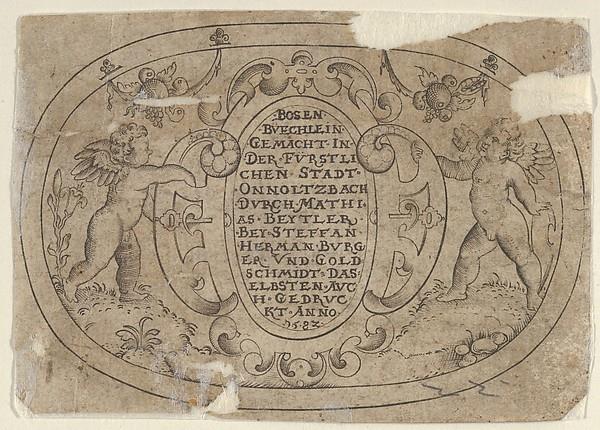 BOSEN·
BVECHLEIN·
GEMACHT·IN·
DER·FÜRSTLI
CHEN·STADT·
ONNOLTZBACH
DVRCH·MATHI
AS·BEYTLER·
BEY·STEFFAN·
HERMAN·BVRG
ER·VND·GOLD
SCHMIDT·DAS·
ELBSTEN·AVC
H·GEDRVC
KT·ANNO·
1582